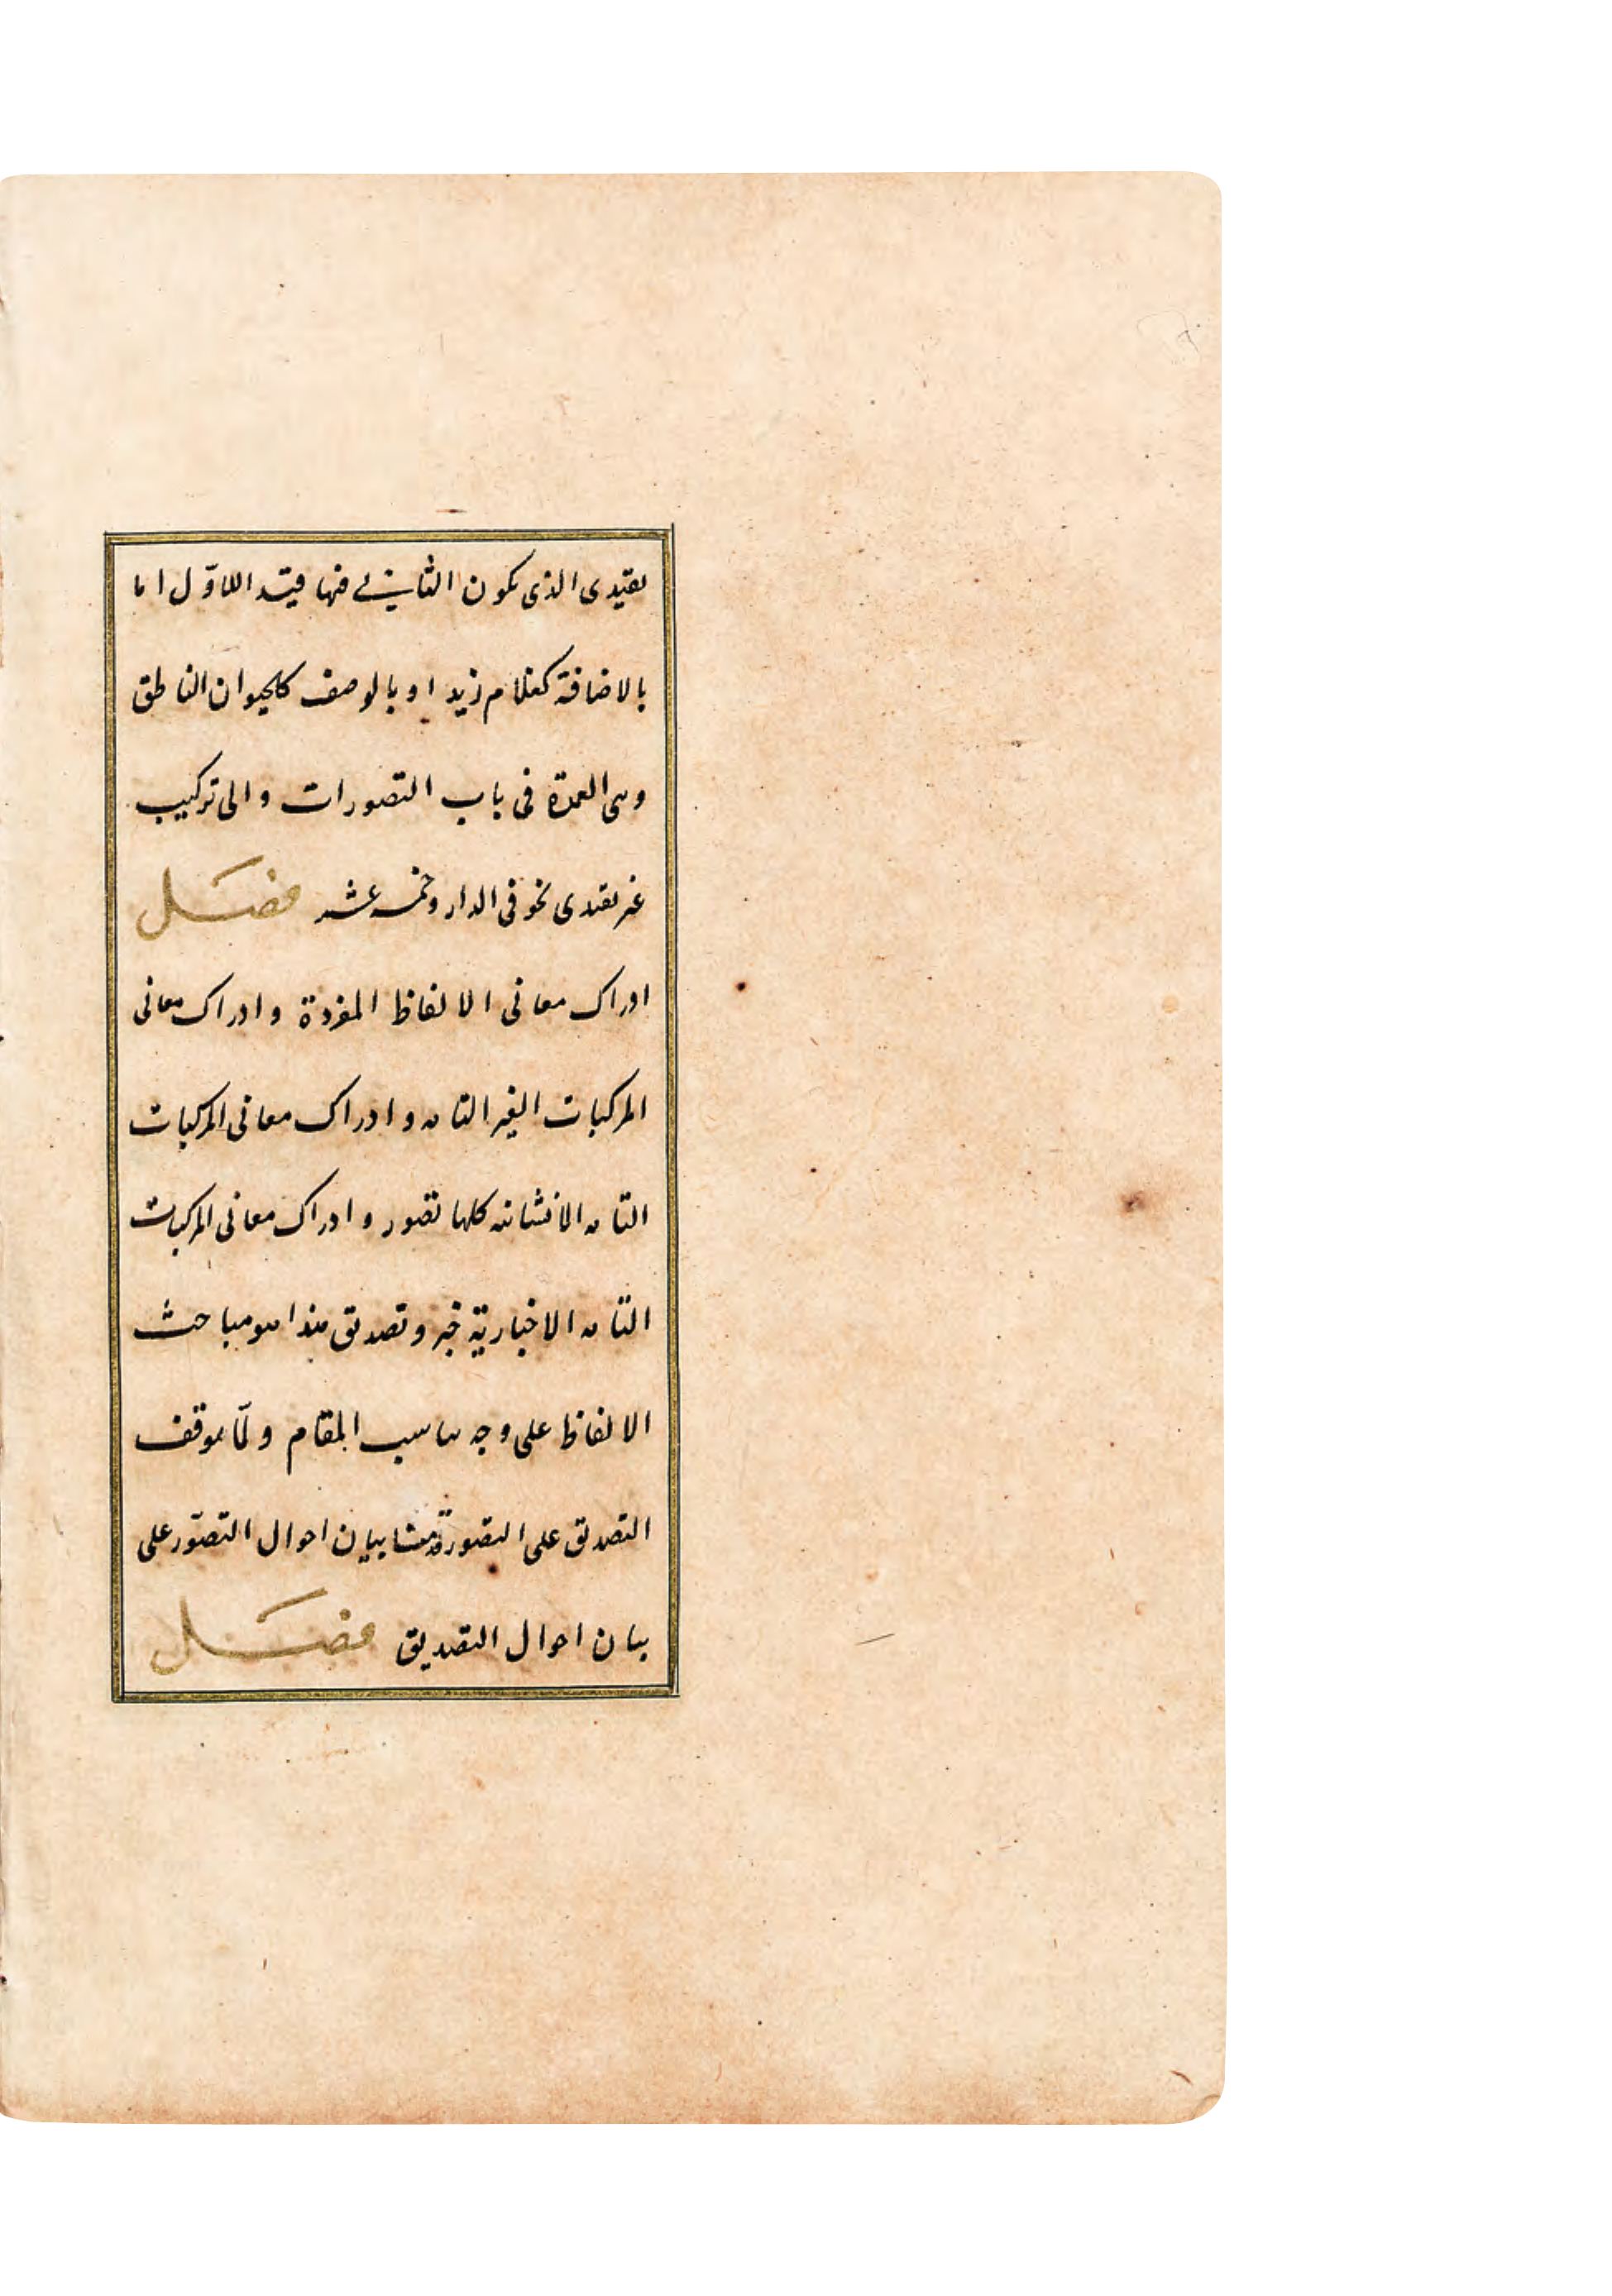 تقييدى الذى يكون الثانى فيها قيد اللاوّل اما
بالاضافة كغلام زيد او بالوصف كالحيوان الناطق
وهى العمدة فى باب التصورات والى تركيب
غير تقييدى نحو فى الدار وخمسه عشر فصَل
ادراك معانى الالفاظ المفردة وادراك معانى
المركبات الغير التامه وادراك معانى المركبات
التامه الانشائيه كلها تصور وادراك معانى المركبات
التّامه الاخبارية خبر وتصديق هذا هو مباحث
الالفاظ على وجه يناسب المقام ولمّا توقف
التصديق على التصور قدّمنا بيان احوال التصوّر على
بيان احوال التصديق فصَل